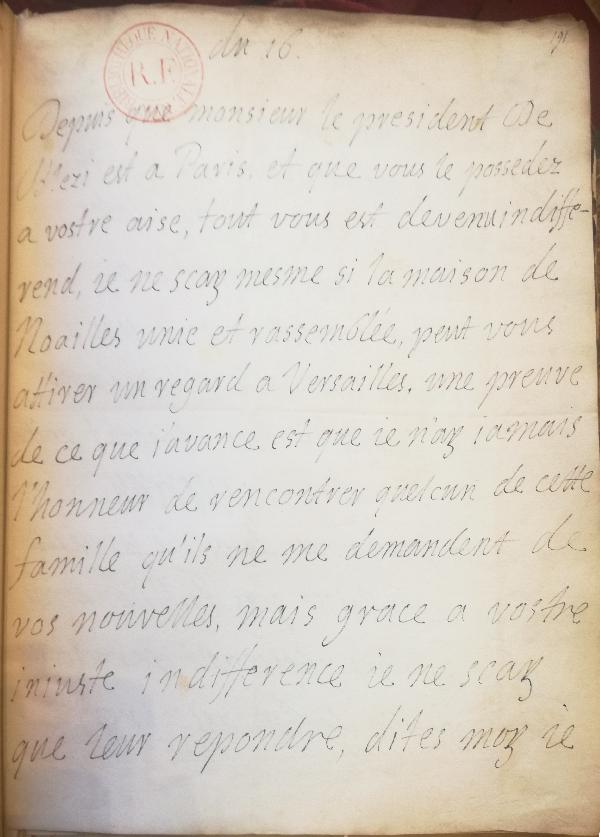 191
du 16.
BIBLIOTHEQUE NATIONALE
R.F.
Depuis que monsieur le president De
est a Paris, et que vous le possedez
a vostre aise, tout vous est devenu indiffe-
rend, ie ne scay mesme si la maison de
Noailles unie et rassemblée, peut vous
attirer un regard a Versailles, une preuve
de ce que i'avance est que ie n'ay iamais
l'honneur de rencontrer quelcun de cette
famille qu'ils ne me demandent de
vos nouvelles, mais grace a vostre
iniuste indifference ie ne scay
que leur repondre, dites moy ie